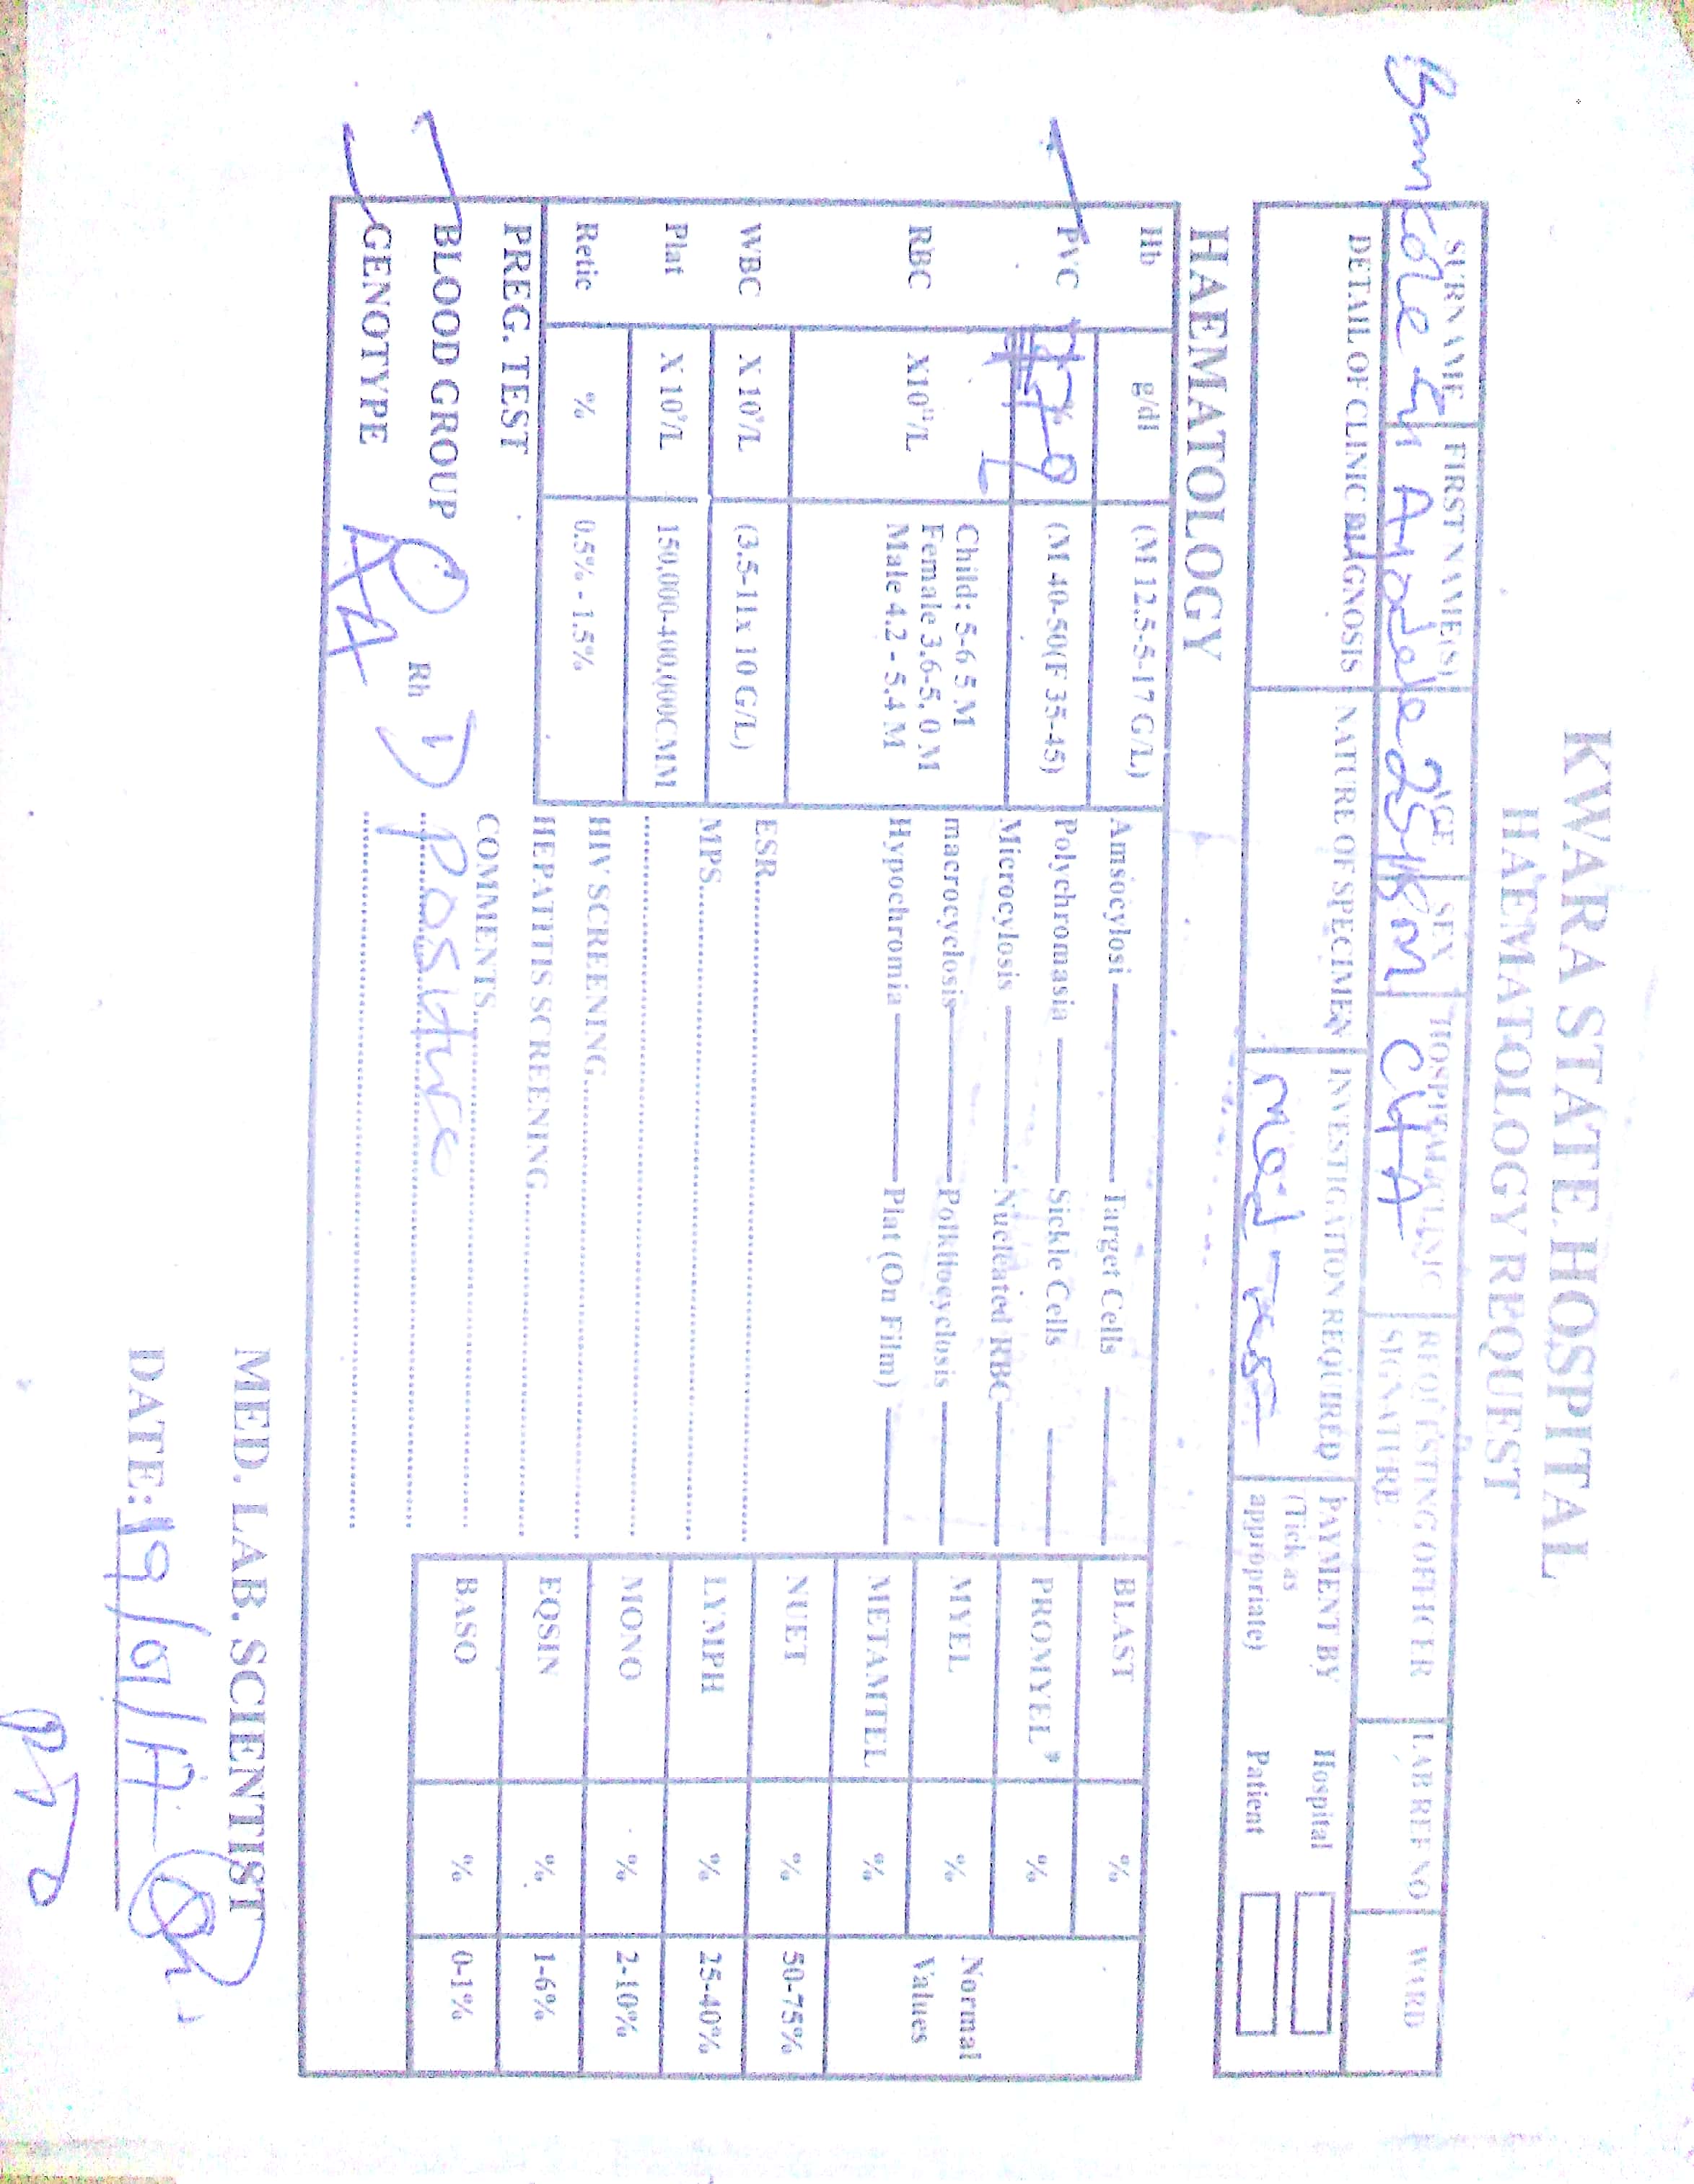 KWARA STATE HOSPITAL
HAEMATOLOGY REQUEST
SURNAME FIRST NAME(S) AGE SEX HOSPITAL/CLINIC REQUESTING OFFICER SIGNATURE LAB REF NO WARD
Bankole Ayodele M
DETAIL OF CLINIC DIAGNOSIS NATURE OF SPECIMEN INVESTIGATION REQUIRED PAYMENT BY (Tick as appropriate) Hospital Patient
med
HAEMATOLOGY
Hb g/dl (M 12.5-5-17 G/L)
PVC % (M 40-50(F 35-45)
RBC X10¹²/L Child: 5-6 5 M
Female 3.6-5, 0 M
Male 4.2 - 5.4 M
WBC X 10⁹/L (3.5-11x 10 G/L)
Plat X 10⁹/L 150,000-400,000CMM
Retic % 0.5% - 1.5%
Amsocylosi Target Cells
Polychromasia Sickle Cells
Microcylosis Nucleated RBC
macrocyclosis Polkilocyclosis
Hypochromia Plat (On Film)
ESR
MPS
HIV SCREENING
HEPATITIS SCREENING
COMMENTS
BLAST %
PROMYEL* %
MYEL %
METAMTEL %
Normal Values
NUET % 50-75%
LYMPH % 25-40%
MONO % 2-10%
EQSIN % 1-6%
BASO % 0-1%
PREG. TEST
BLOOD GROUP O Rh D positive
GENOTYPE AA
MED. LAB. SCIENTIST
DATE: 19/01/17
PTO